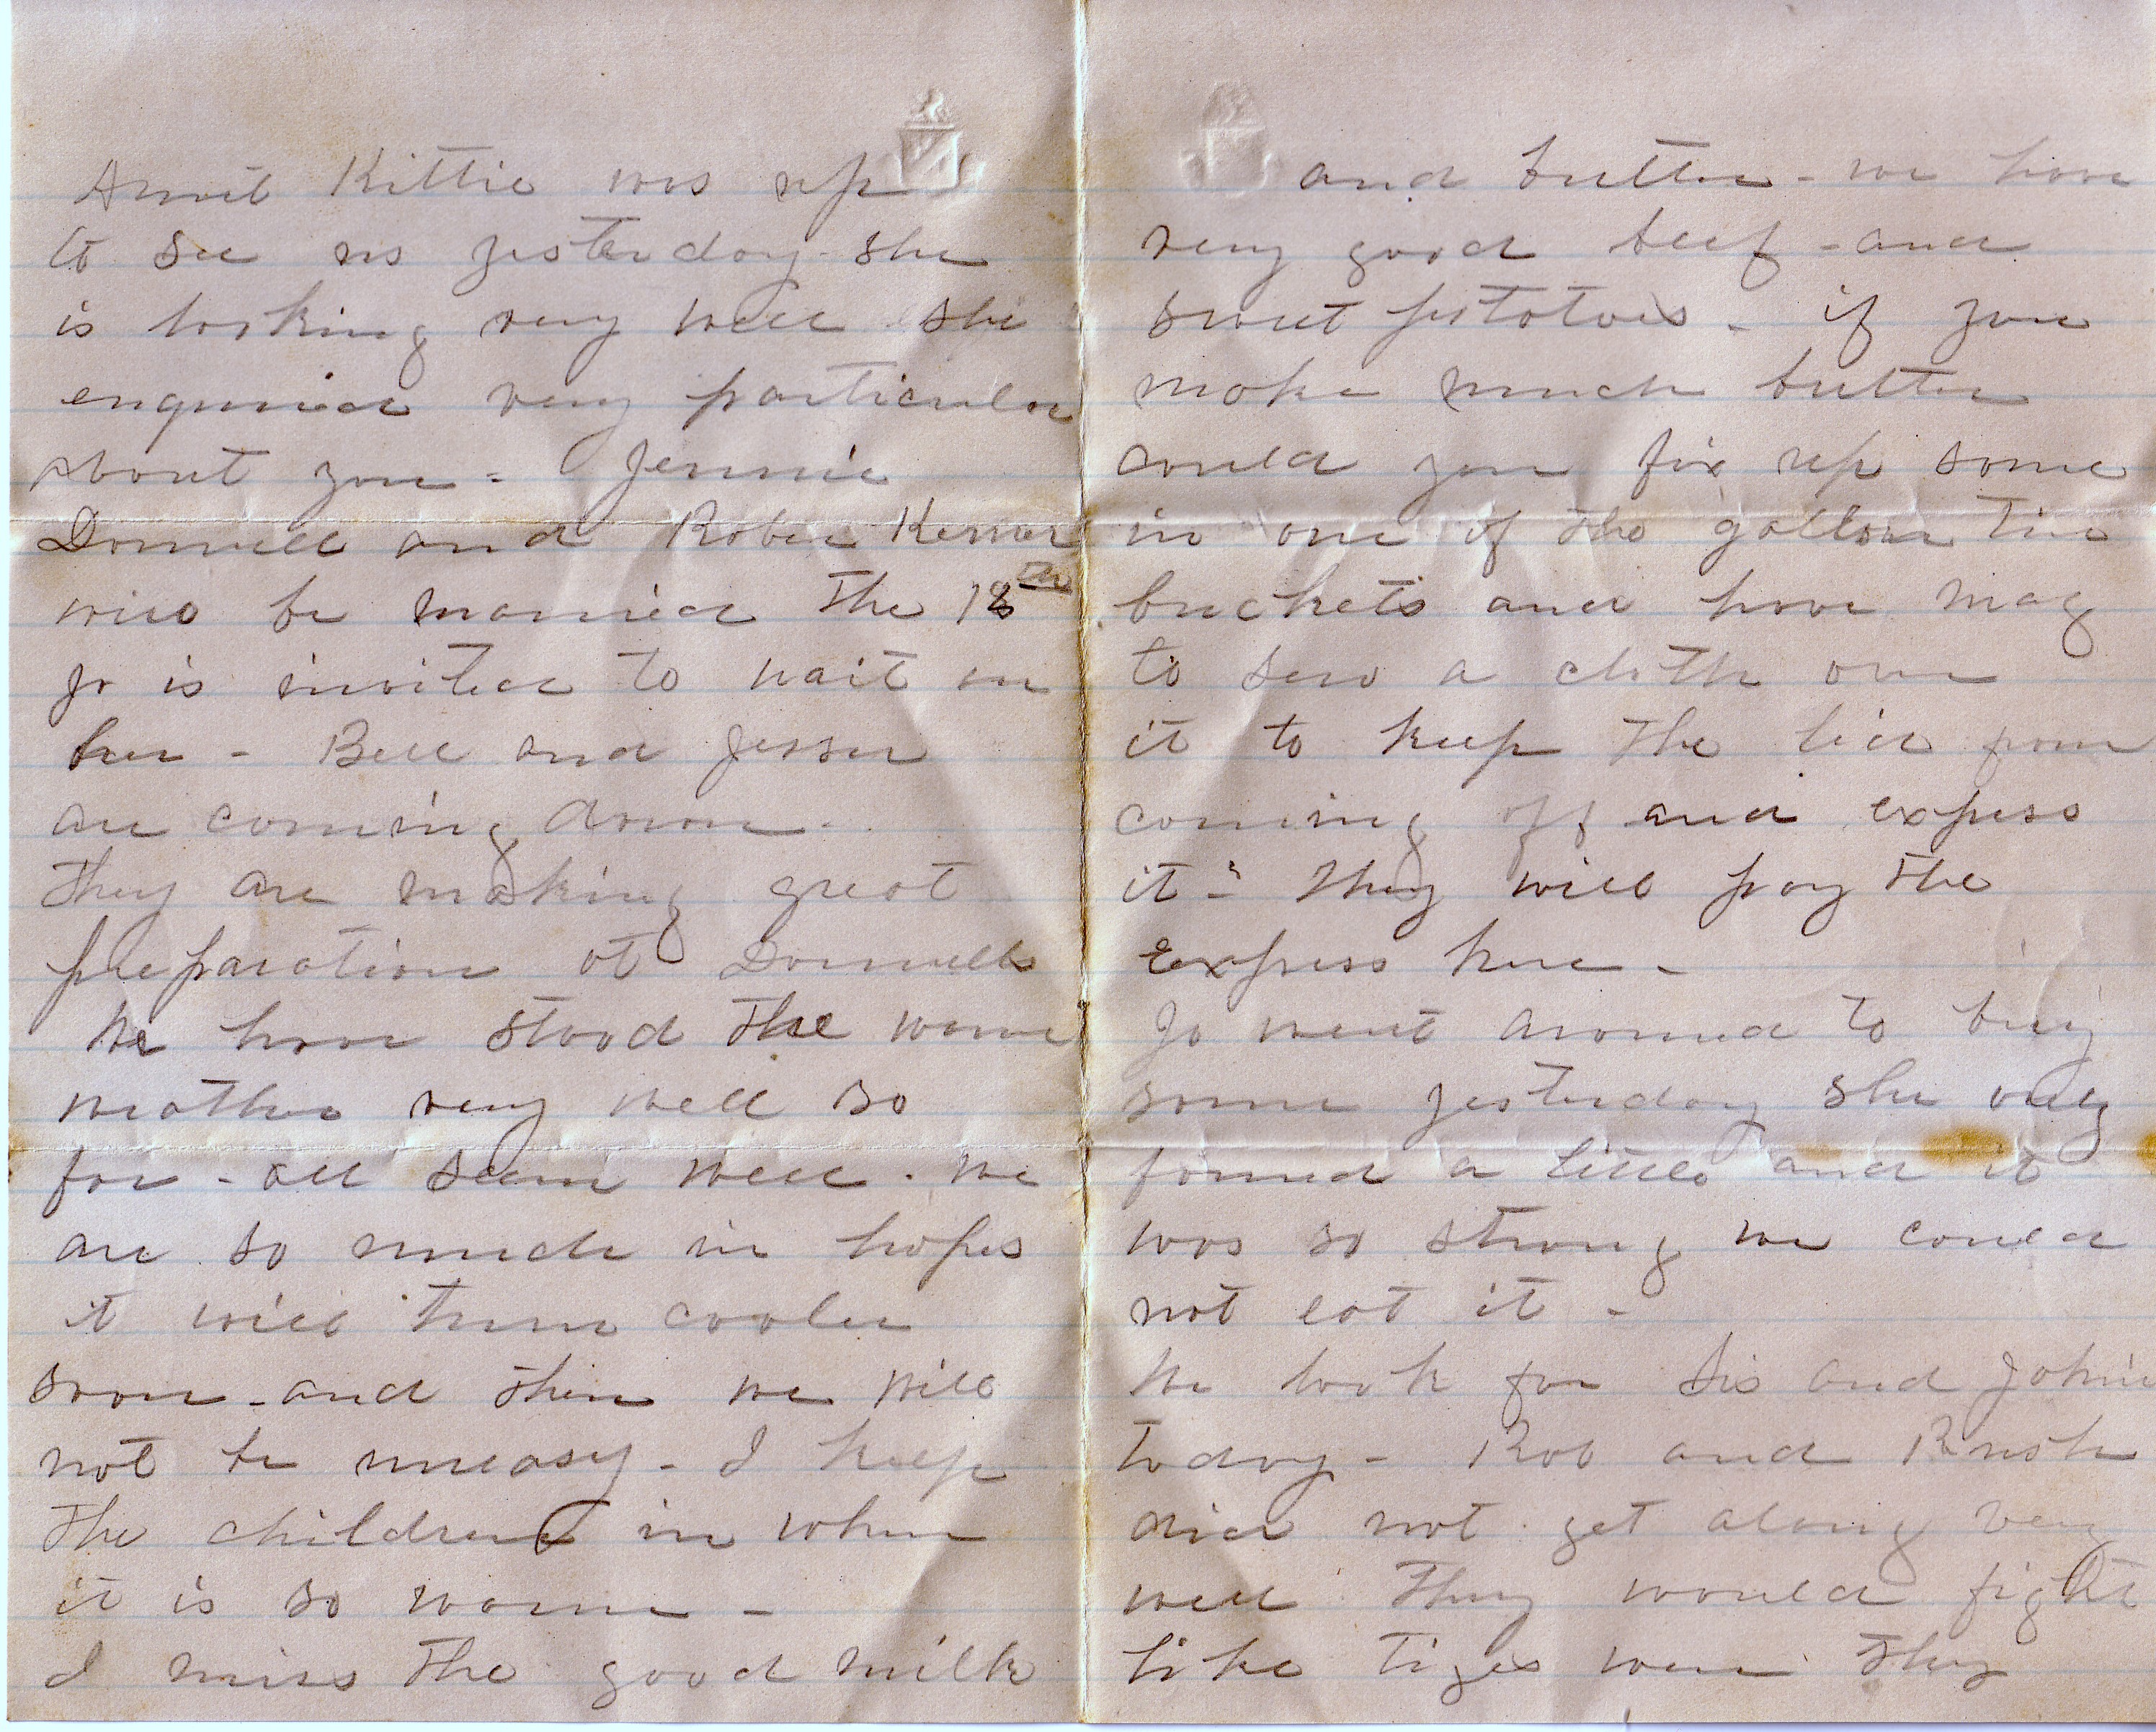 Aunt Kittie was up
to see us yesterday - she
is looking very well she
enquired very particular
about you - Jennie
Donnell and Robie
will be married the 18th
Jo is invited to wait on
her - Bell and Jesse
are coming down -
they are making great
preparation at Donnells
We have stood the warm
weather very well so
far - all seem well - we
are so much in hopes
it will turn cooler
soon - and then we will
not be uneasy - I keep
the children in when
it is so warm -
I miss the good milk
and butter - we have
very good beef - and
sweet potatoes - if you
make much butter
could you fix up some
in one of the gallon tin
buckets and have Mag
to sew a cloth over
it to keep the lid from
coming off and express
it - they will pay the
express here -
Jo went around to buy
some yesterday she only
found a little and it
was so strong we could
not eat it -
We look for Sis and Johnie
today - Rob and Rush
did not get along very
well they would fight
like tiges were they